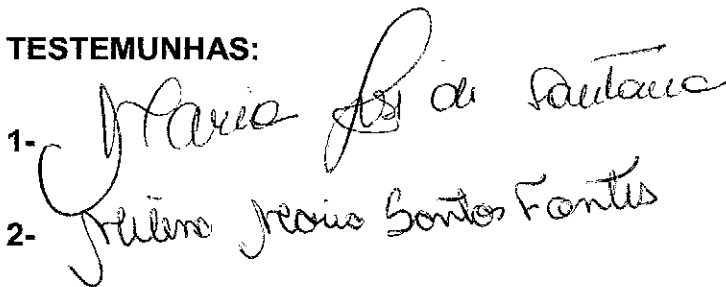 TESTEMUNHAS:
1- Maria de Santana
2- Milena Maria Santos Fontes